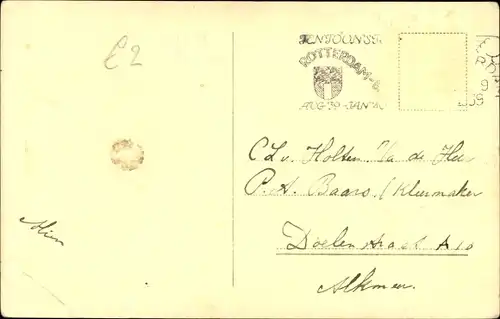 £2
TENTOONST.
ROTTERDAM-
AUG '39 - JAN '40
9
C L v. Holten Va de Heer
P. A. Baars / Kleermaker
Doelenstraat A 10
Alkmaar.
Mien